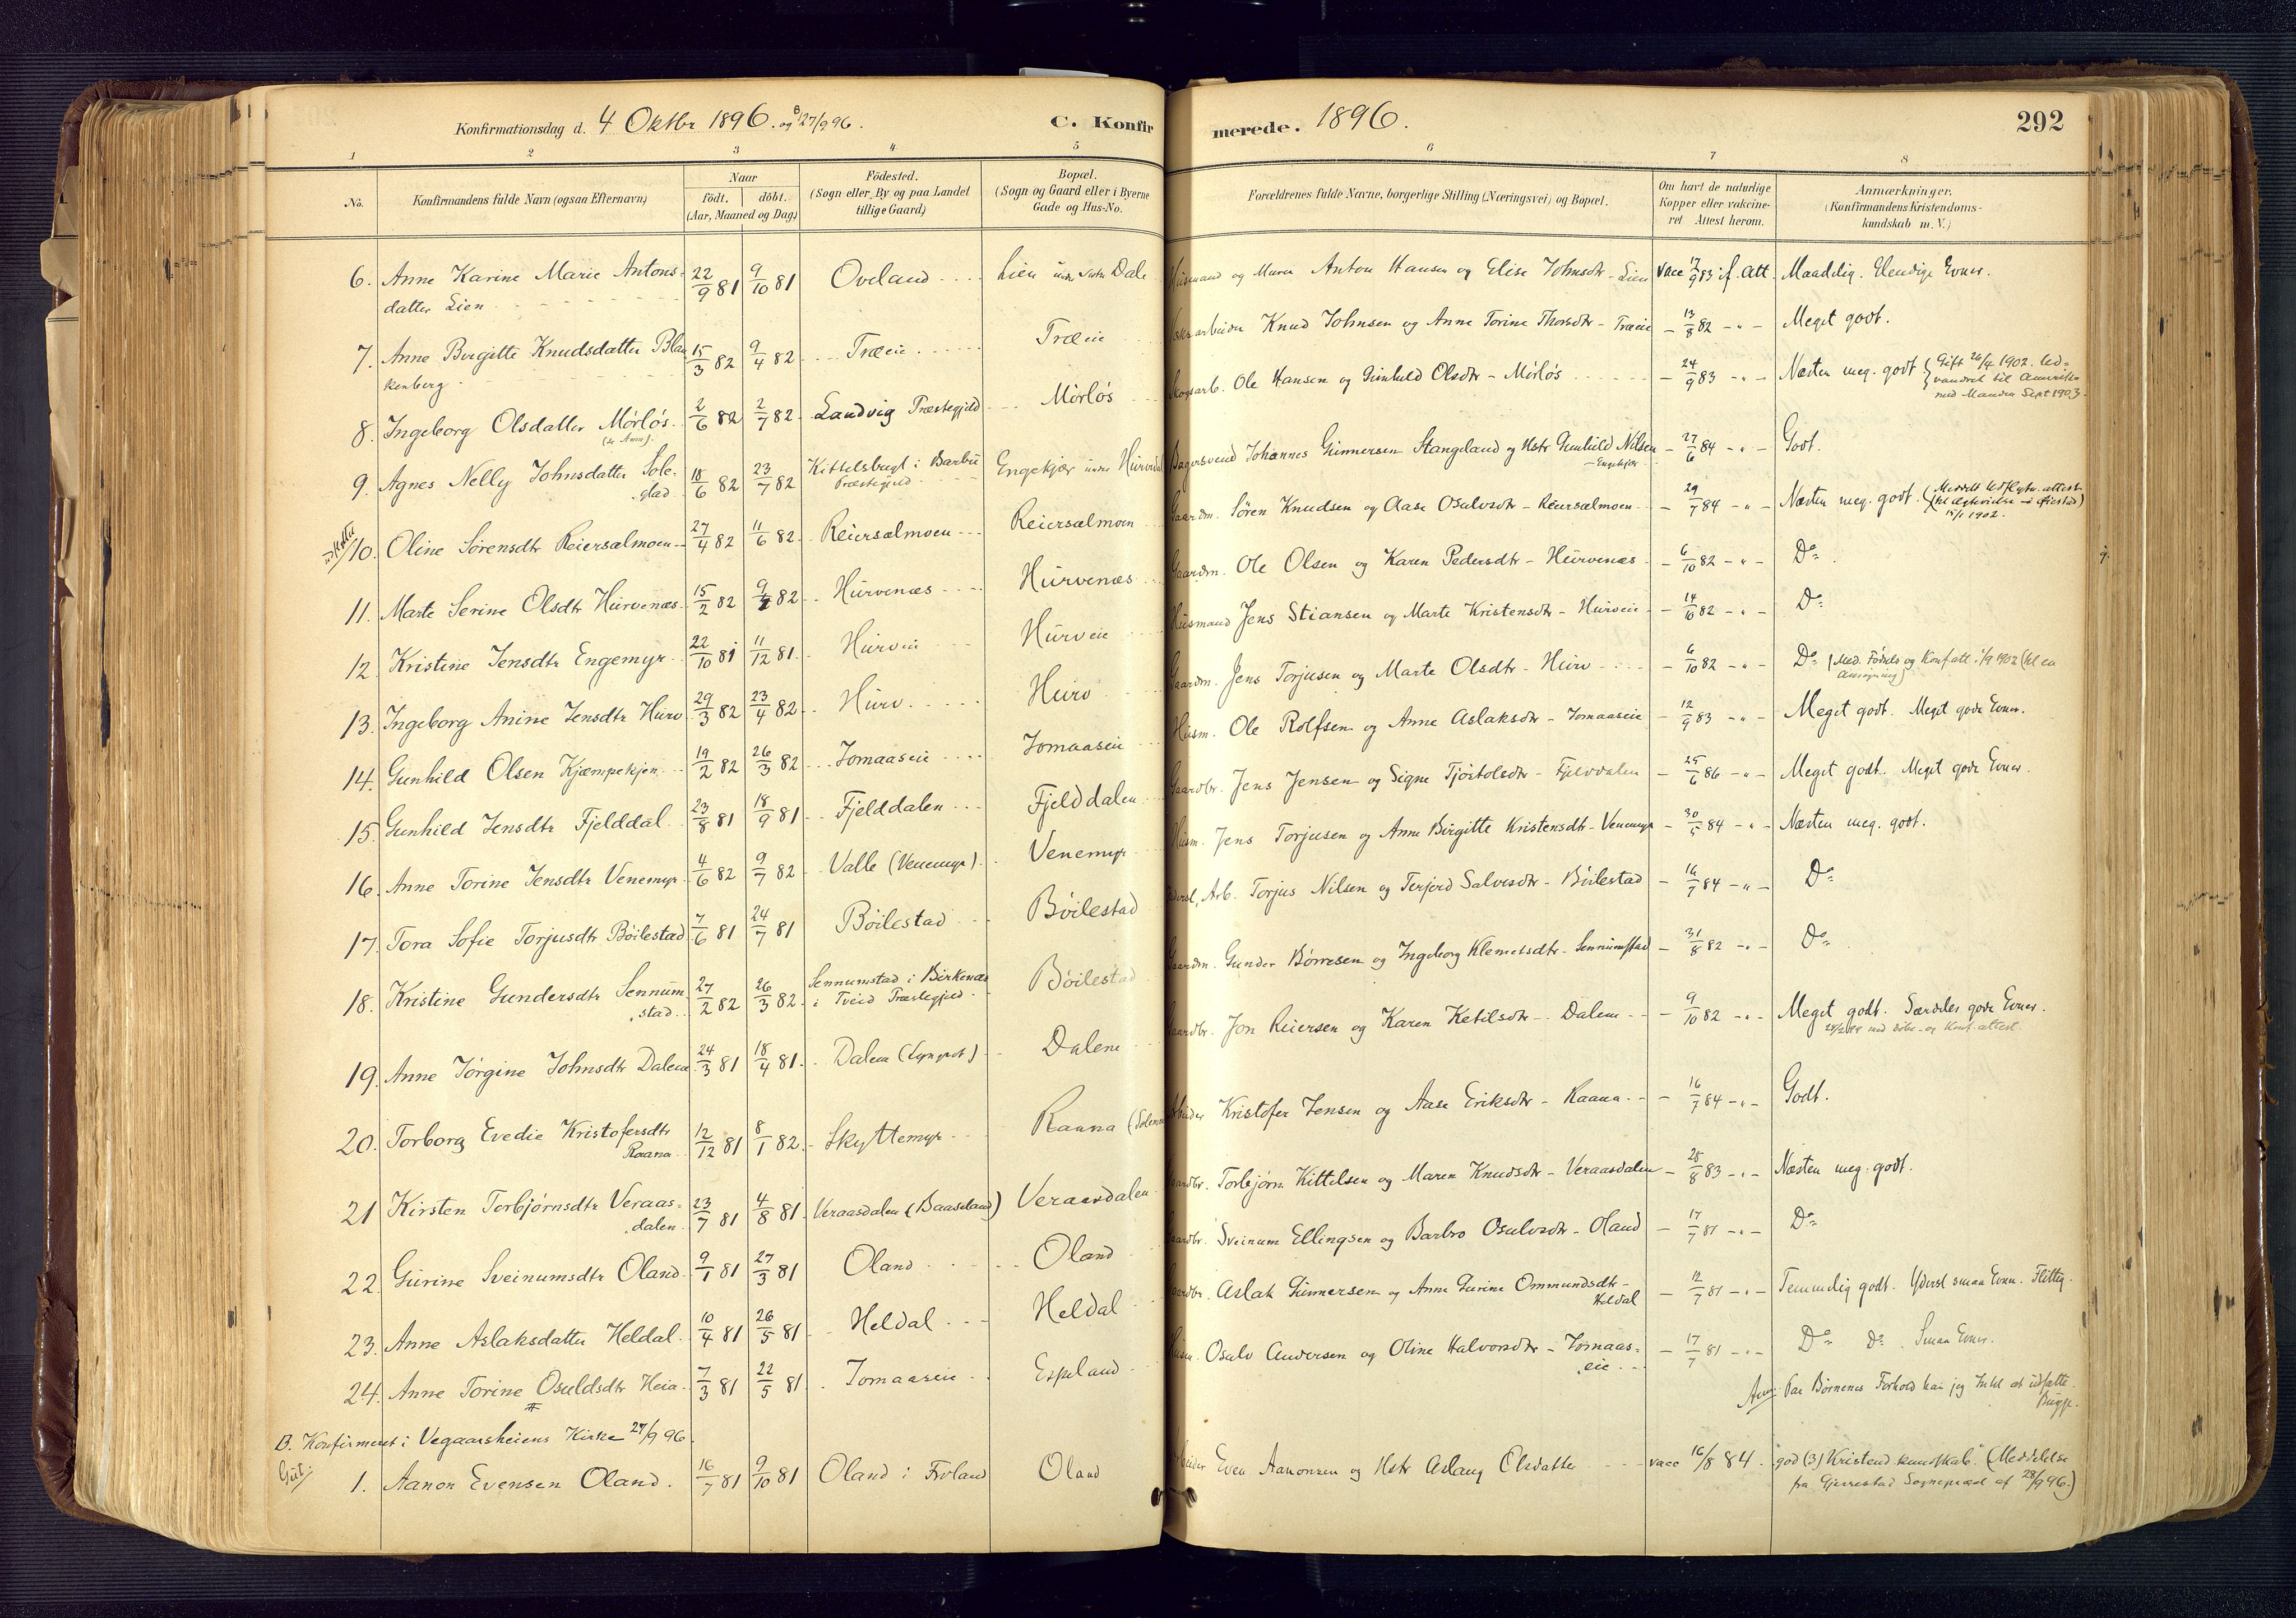 Konfirmationsdag d. 4 Oktbr 1896. og 27/9 96.
C. Konfirmerede. 1896.
292
1 2 3 4 5 6 7 8
No.
Konfirmandens fulde Navn (ogsaa Efternavn)
Naar
födt. döbt.
(Aar, Maaned og Dag)
Födested.
(Sogn eller By og paa Landet
tillige Gaard)
Bopæl.
(Sogn og Gaard eller i Byerne
Gade og Hus-No.
Forældrenes fulde Navne, borgerlige Stilling (Næringsvei) og Bopæl.
Om havt de naturlige
Kopper eller vakcine-
ret Attest herom.
Anmærkninger.
(Konfirmandens Kristendoms-
kundskab m. V.)
6. Anne Karine Marie Antons- 22/9 81 9/10 81 Oveland Lien under Dale Husmand og Murer Anton Hansen og Elise Johnsdtr - Lien vacc 12/9 83 if. att. Maadelig. Elendige Evner.
datter Lien
7. Anne Birgitte Knudsdatter Blan 15/3 82 9/4 82 Træie Træie arbeider Knud Johnsen og Anne Torine Thorsdtr - Træie - 13/8 82 - " - Meget godt.
kenberg
8. Ingeborg Olsdatter Mörlös. 2/6 82 2/7 82 Landvig Præstegjeld Mörlös Skogsarb. Ole Hansen og Gunhild Olsdtr - Mörlös - 24/9 83 - " - Næsten meg. godt (Gift 26/4 1902. Ud-
vandret til Amerika
med Manden Sept 1903.
9. Agnes Nelly Johnsdatter Sole- 18/6 82 23/7 82 Kittelsbugt i Barbu Engekjær under Hurvedal Bagersvend Johannes Gunnersen Stangeland og Hstr Gunhild Nilsen - 27/6 84 - " - Godt.
glad Præstegjeld - Engekjær
10. Oline Sörensdtr Reiersælmoen 27/4 82 11/6 82 Reiersælmoen Reiersælmoen Gaardm. Sören Knudsen og Aase Osulvsdtr - Reiersælmoen - 29/7 84 - " - Næsten meg. godt. (Meddelt Udflytn. attest
15/1 1902.
11. Marte Serine Olsdtr Hurvenæs 15/2 82 82 Hurvenæs Hurvenæs Gaardm. Ole Olsen og Karen Pedersdtr - Hurvenæs - 6/10 82 - " - Do
12. Kristine Jensdtr Engemyr 22/10 81 11/12 81 Hurveie Hurveie Husmand Jens Stiansen og Marte Kristensdtr - Hurveie - 14/10 82 - " - Do
13. Ingeborg Anine Jensdtr Hurv 29/3 82 23/4 82 Hurv Hurv Gaardm. Jens Torjusen og Marte Olsdtr - Hurv - 6/10 82 - " - Do (Med. Födsels og Konf att. 1/9 1902 (til en
Ansögning)
14. Gunhild Olsen Kjæmpekjen 19/2 82 26/3 82 Tomaaseie Tomaaseie Husm. Ole Rolfsen og Anne Aslaksdtr - Tomaaseie - 12/9 83 - " - Meget godt. Meget gode Evner.
15. Gunhild Jensdtr Fjelddal 23/8 81 18/9 81 Fjelddalen Fjelddalen Gaardbr. Jens Jensen og Signe Tjöstolsdtr - Fjelddalen - 25/6 86 - " - Meget godt. Meget gode Evner.
16. Anne Torine Jensdtr Venemyr 4/6 82 9/7 82 Valle (Venemyr) Venemyr Husm. Jens Torjusen og Anne Birgitte Kristensdtr - Venemyr - 30/5 84 - " - Næsten meg. godt.
17. Tora Sofie Torjusdtr Böilestad 7/6 81 24/7 81 Böilestad Böilestad Arb. Torjus Nilsen og Terjerd Salvesdtr - Böilestad - 16/7 84 - " - Do
18. Kristine Gundersdtr Sennum 27/2 82 26/3 82 Sennumstad i Birkenæs Böilestad Gaardm. Gunder Börresen og Ingeborg Klemetsdtr - Sennumstad - 31/8 82 - " - Do
stad i Tveid Præstegjeld
19. Anne Jörgine Johnsdtr Dalene 24/3 81 18/4 81 Dalene Dalene Gaardbr. Jon Reiersen og Karen Ketilsdtr - Dalene - 9/10 82 - " - Meget godt. Særdeles gode Evner.
med Döbe- og Konf. attest
20. Torborg Evedie Kristofersdtr 12/12 81 8/1 82 Skyttemyr Raana Arbeider Kristofer Jensen og Aase Eriksdtr - Raana - 16/7 84 - " - Godt.
Raana
21 Kirsten Torbjörnsdtr Veraas- 23/7 81 4/8 81 Veraasdalen (Baaseland) Veraasdalen Gaardbr. Torbjörn Kittelsen og Maren Knudsdtr - Veraasdalen - 28/8 83 - " - Næsten meg. godt.
dalen
22. Gurine Sveinumsdtr Oland 9/1 81 27/3 81 Oland Oland Gaardbr. Sveinum Ellingsen og Barbro Osulvsdtr - Oland - 17/7 81 - " - Do
23. Anne Aslaksdatter Heldal 10/4 81 26/5 81 Heldal Heldal Gaardbr. Aslak Gunnersen og Anne Gurine Ommundsdtr - - 12/7 81 - " - Temmelig godt. Yderst smaa Evner. Flittig.
Heldal
24. Anne Torine Osuldsdtr Heia 7/3 81 22/5 81 Tomaaseie Espeland Husm. Osulv Andersen og Oline Halvorsdtr - Tomaas- - 17/7 81 - " - Do Do. Smaa Evner.
eie
Anm. Paa Börnenes Forhold har jeg Intet at udsætte.
Bugge.
B. Konfirmeret i Vegaarsheiens Kirke 27/9 96.
Gut:
1. Aanon Evensen Oland. 16/7 81 9/10 81 Oland i Froland Oland Arbeider Even Aanonsen og Hstr Aslaug Olsdatter vacc 16/8 84. "god (3) Kristend kundskab." (Meddelelse
fra Gjerrestad Sognepræst af 28/9 96.)